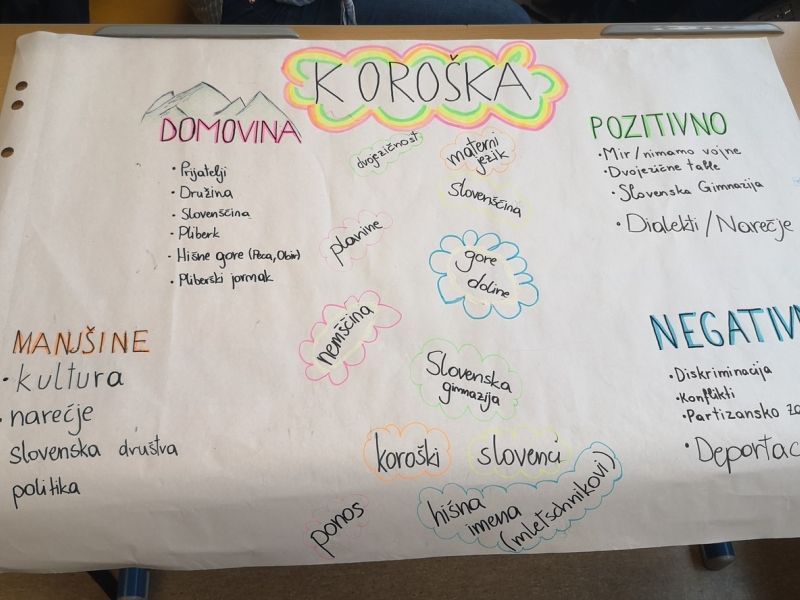 KOROŠKA
DOMOVINA
• Prijatelji
• Družina
• Slovenščina
• Pliberk
• Hišne gore (Peca, Obir)
• Pliberški jormak
MANJŠINE
• kultura
• narečje
slovenska društva
politika
dvojezičnost
materni
jezik
Slovenščina
planine
gore
doline
nemščina
Slovenska
gimnazija
koroški
slovenci
hišna
imena
(mletschnikovi)
ponos
POZITIVNO
• Mir/nimamo vojne
• Dvojezične table
• Slovenska Gimnazija
• Dialekti/Narečje
NEGATIVN
• Diskriminacija
• Konflikti
• Partizansko
• Deportac